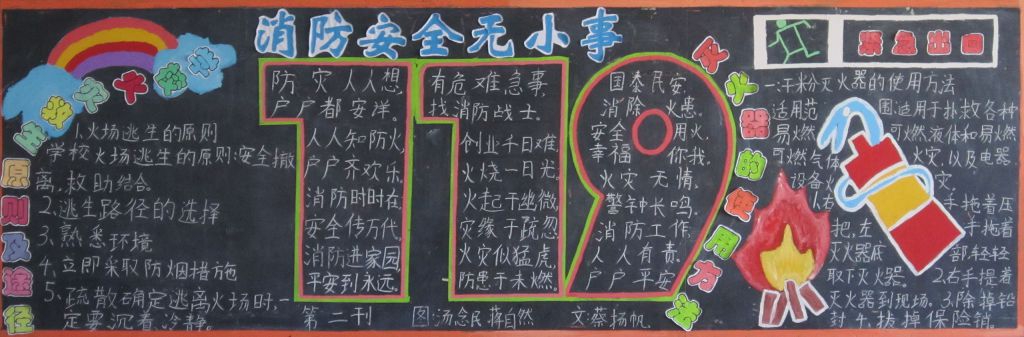 消防安全无小事
生救灾火救
原则及途径
1.火场逃生的原则
学校火场逃生的原则:安全撤
离,救助结合。
2.逃生路径的选择
3.熟悉环境
4.立即采取防烟措施
5.疏散确定逃离火场时,一
定要沉着、冷静。
防灾人人想,
户户都安洋。
人人知防火,
户户齐欢乐。
消防时时在,
安全传万代。
消防进家园,
平安到永远。
有危难急事,
找消防战士。
创业千日难,
火烧一日光。
火起于坐微,
灾缘于疏忽。
火灾似猛虎,
防患于未燃。
国泰民安,
消除火患。
安全用火,
幸福你我。
火灾无情,
警钟长鸣。
消防工作,
人人有责。
户户平安
第二刊 图:汤念民 蒋自然 文:蔡扬帆
灭火器的使用方法
紧急出口
一:干粉灭火器的使用方法
适用范围:适用于扑救各种
易燃可燃液体和易燃
可燃气体火灾,以及电器
设备火灾。
1.右手拖着压
把,左手拖着
灭火器底部,轻轻
取下灭火器。2.右手提着
灭火器到现场。3.除掉铅
封 4.拔掉保险销。